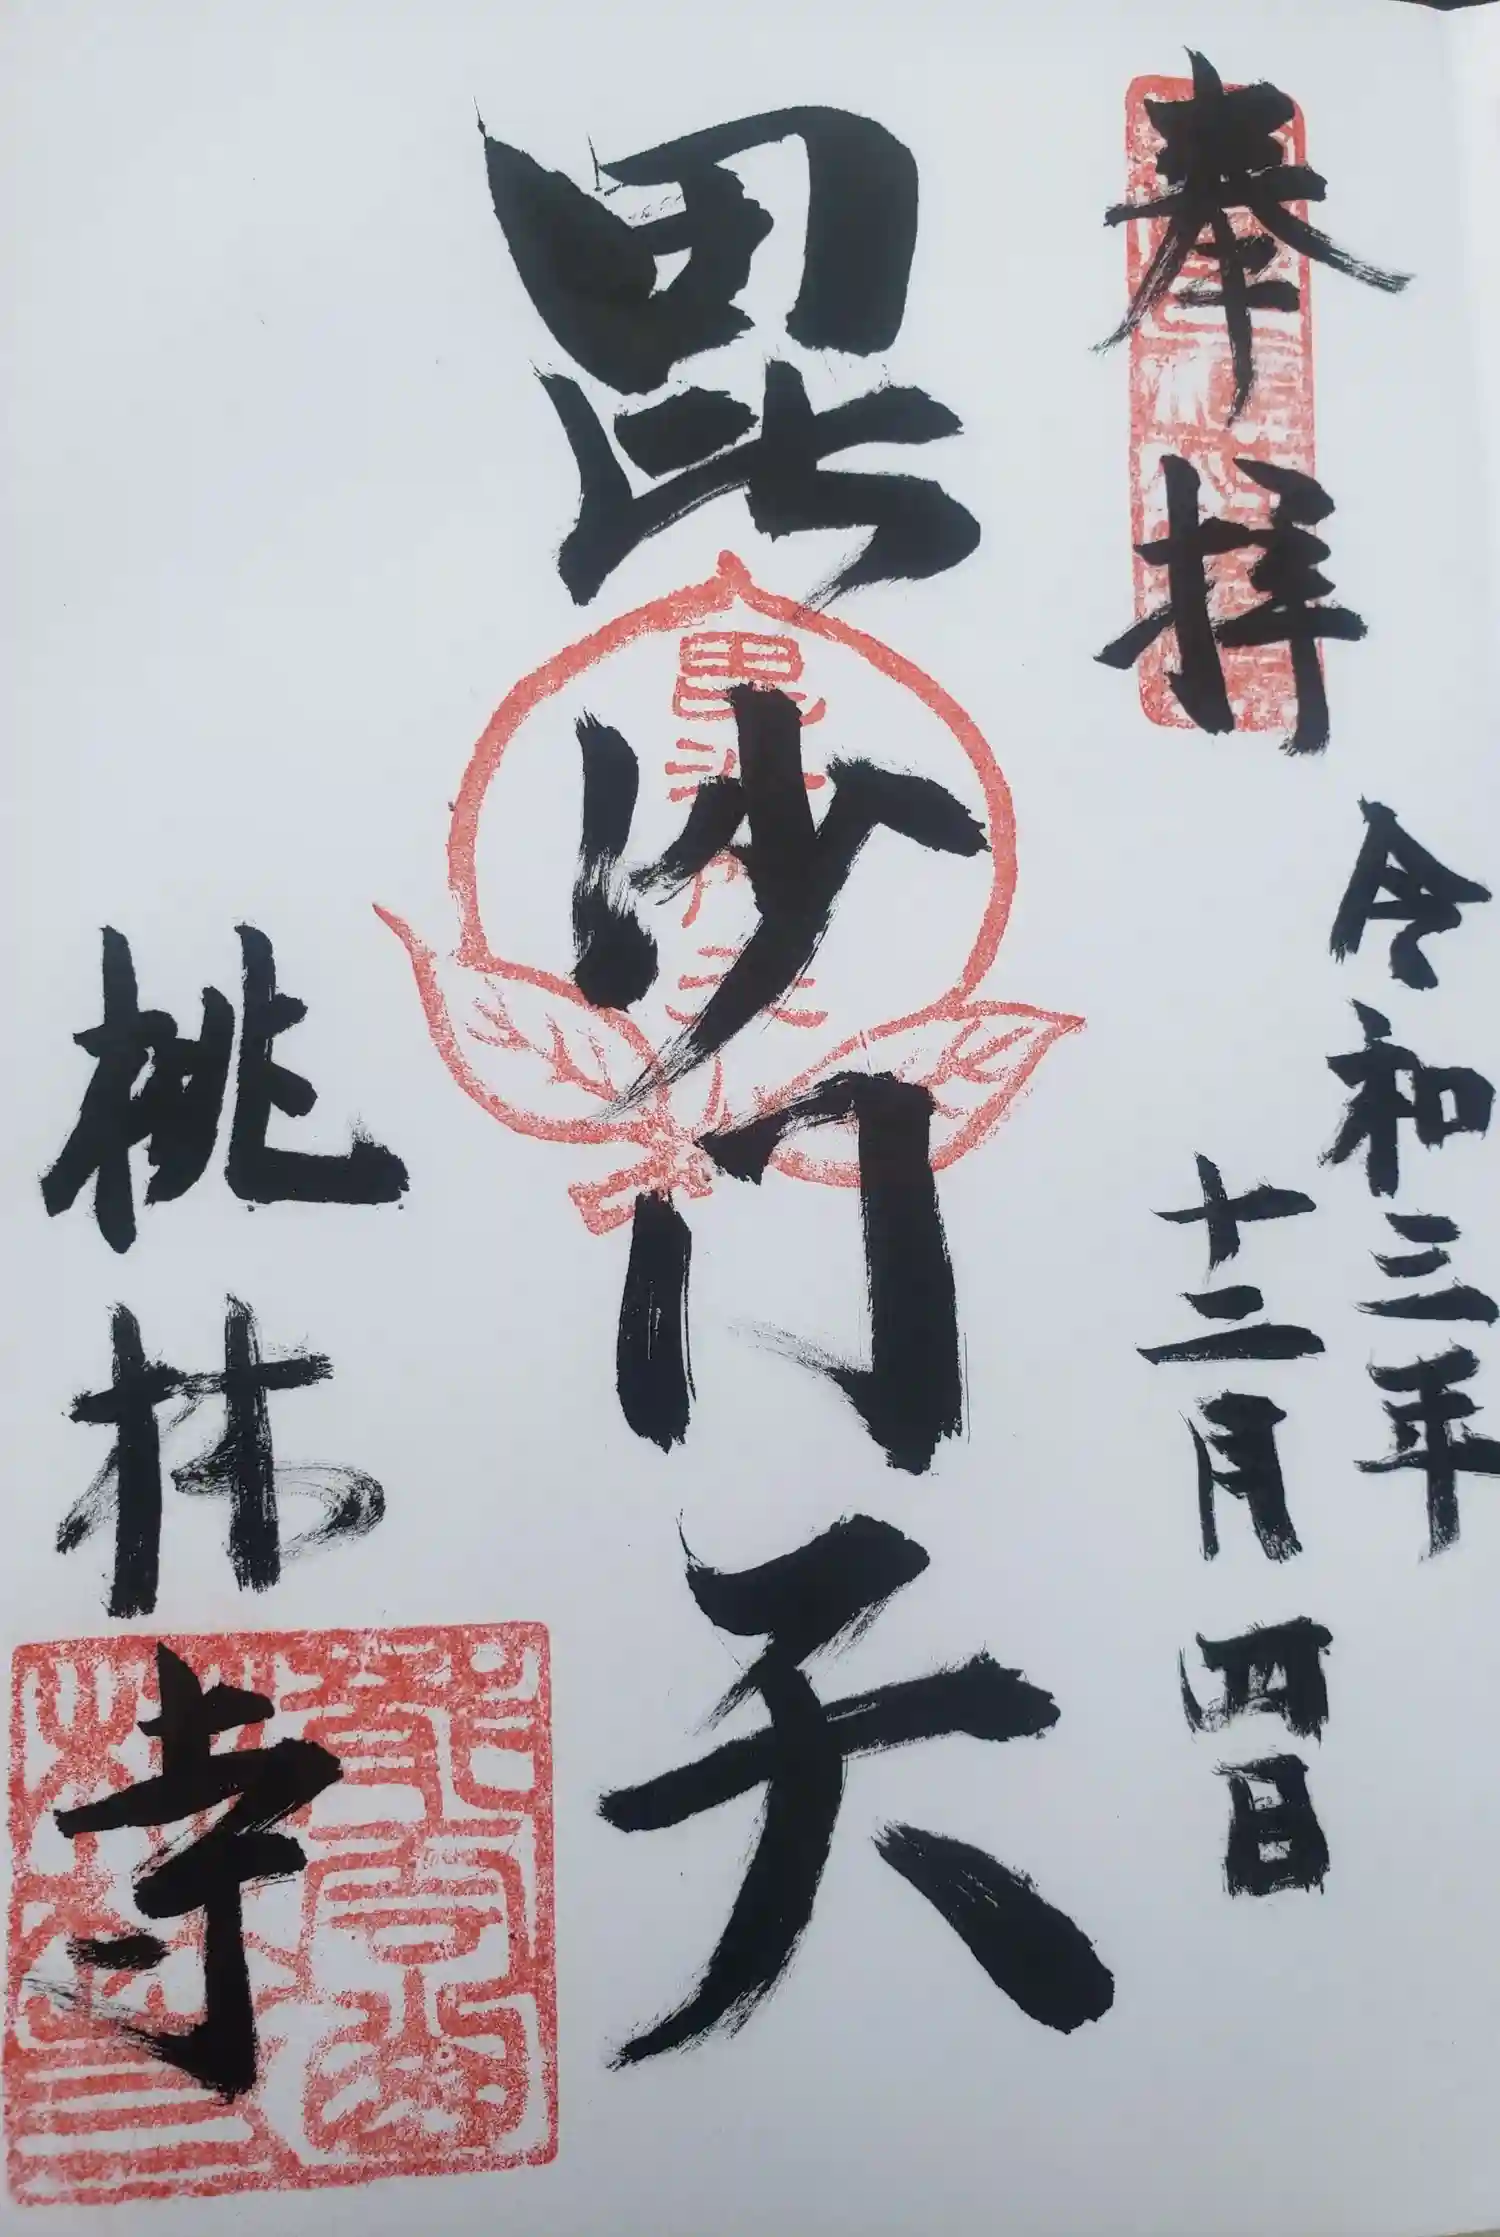 奉拝
令和三年
十二月四日
毘沙門天
桃林寺